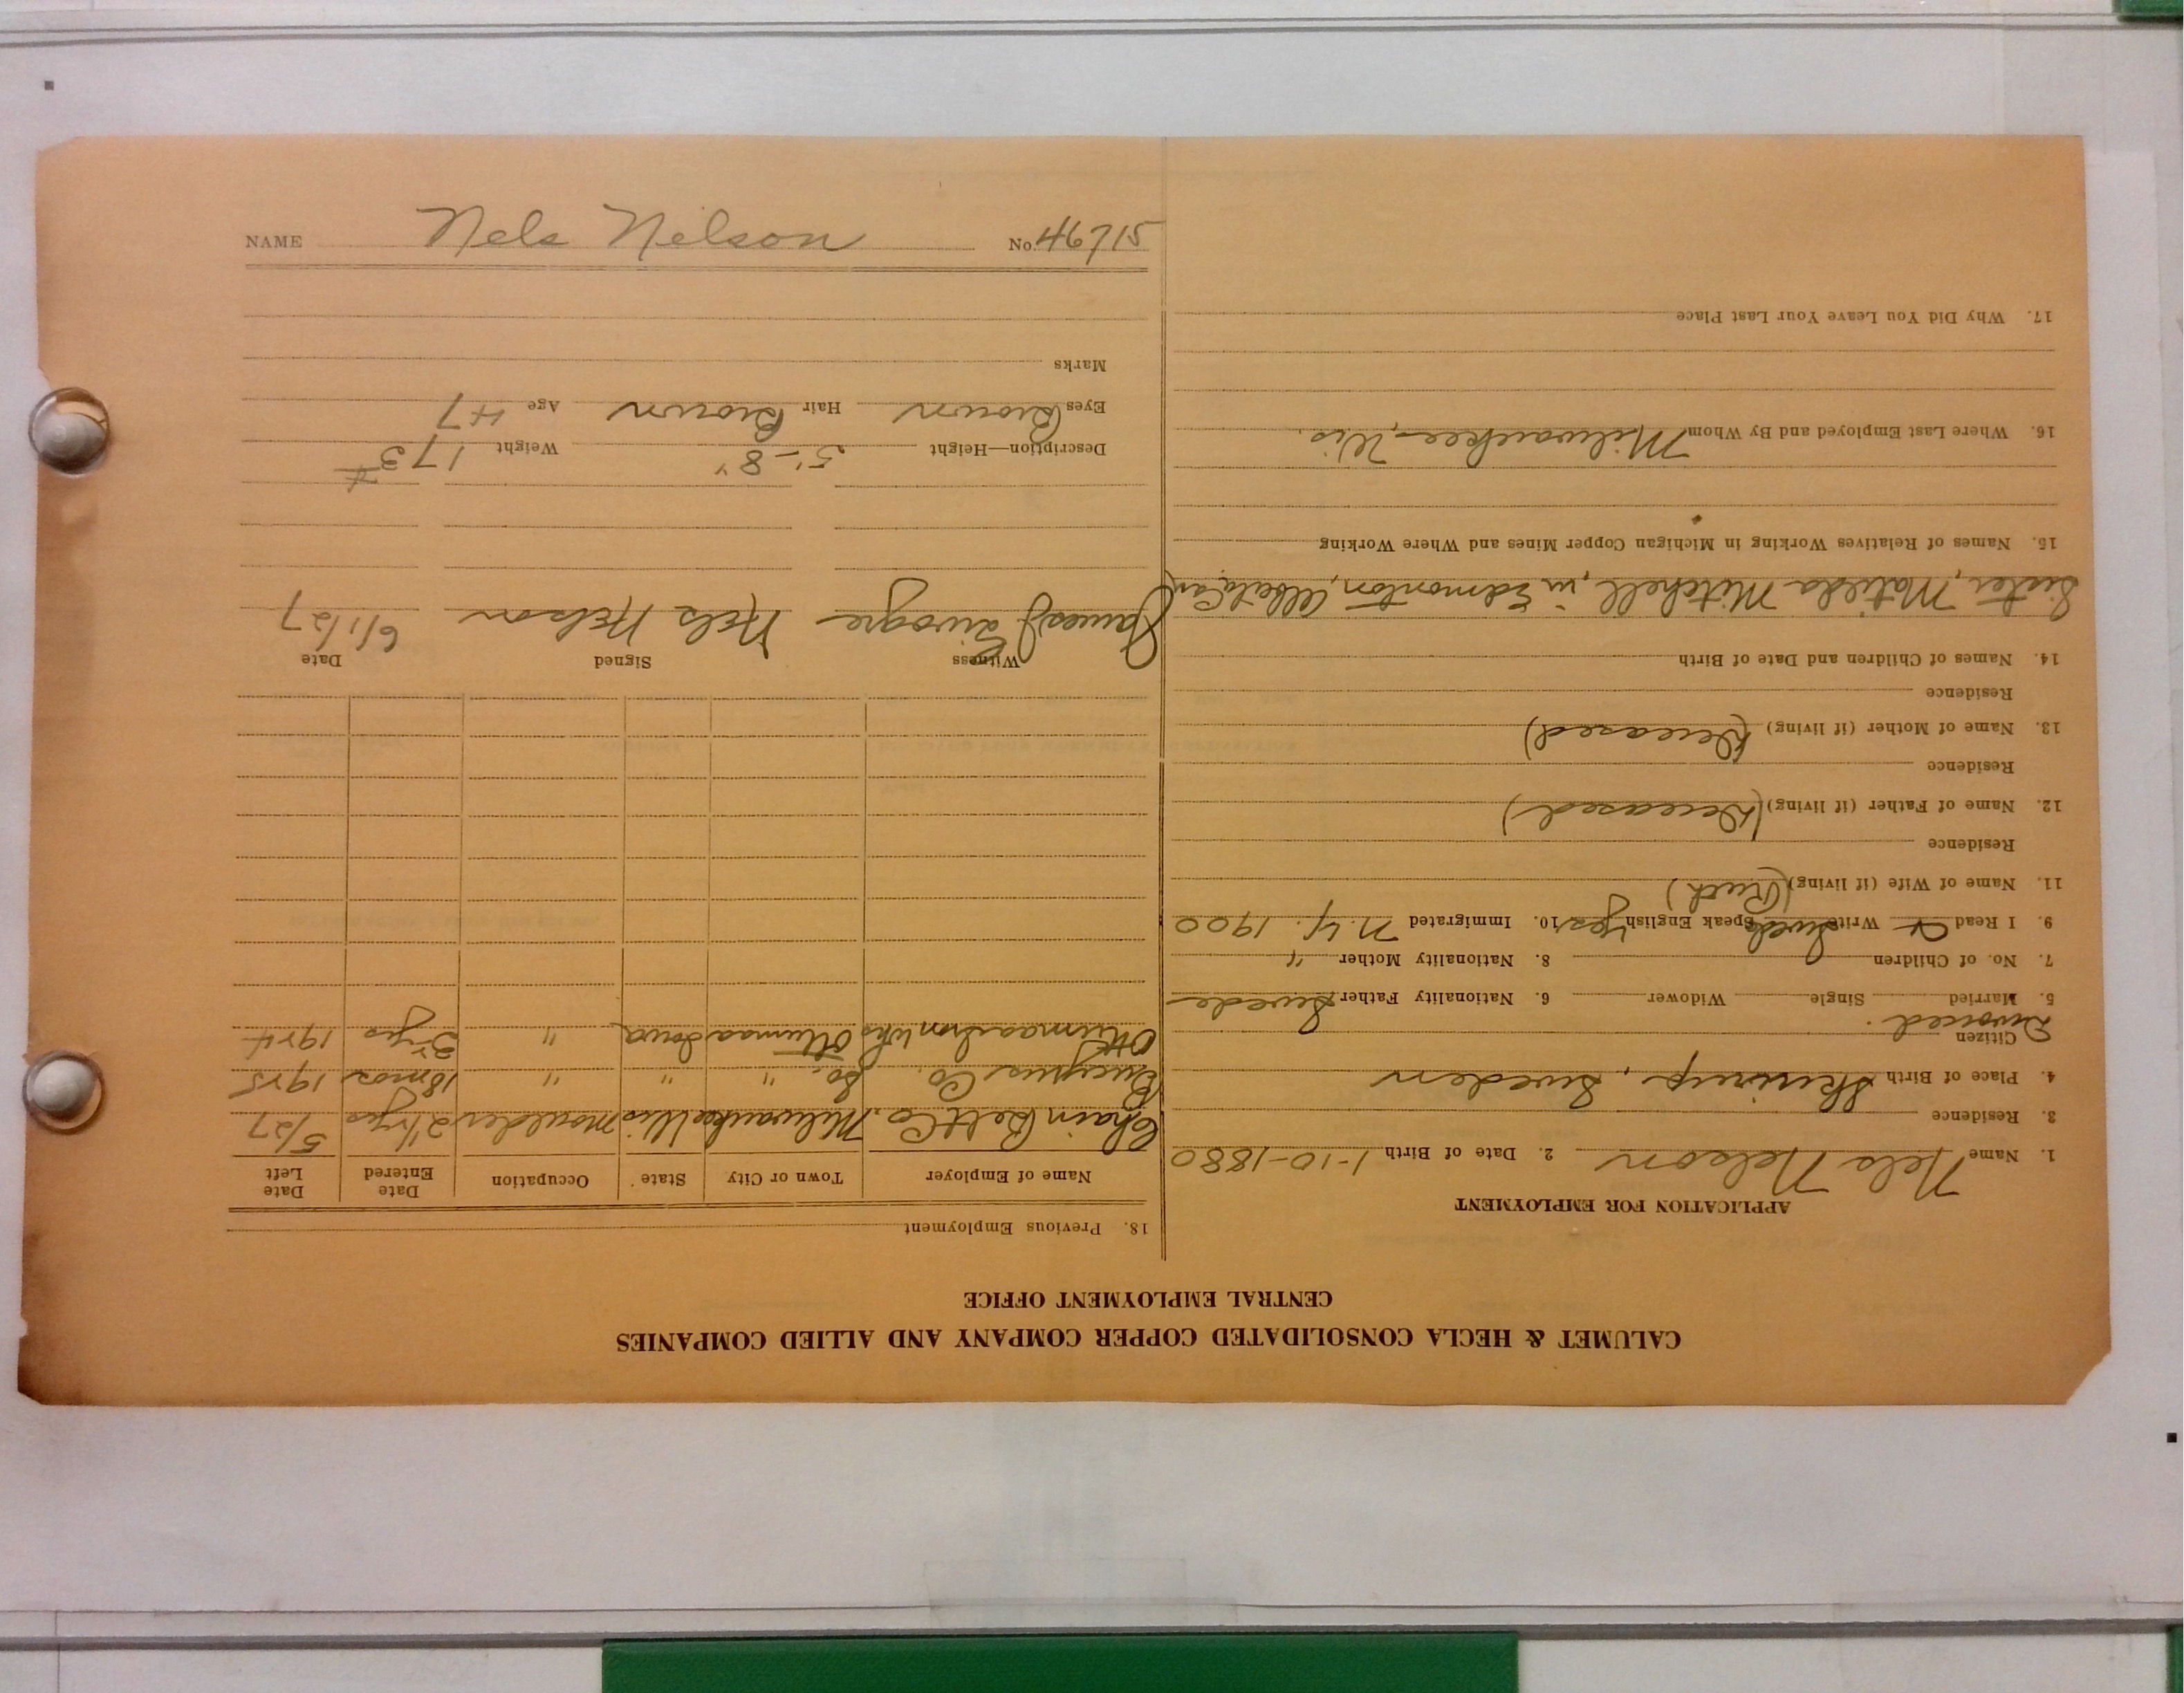 NAME Nels Nelson No. 46715
CALUMET & HECLA CONSOLIDATED COPPER COMPANY AND ALLIED COMPANIES
CENTRAL EMPLOYMENT OFFICE
APPLICATION FOR EMPLOYMENT
1. Name Nels Nelson 2. Date of Birth 1-10-1880
3. Residence
4. Place of Birth Sweden
Citizen
Divorced
5. Married Single Widower 6. Nationality Father Swede
7. No. of Children 8. Nationality Mother "
9. I Read Write Swede Speak English Yes 10. Immigrated N.Y. 1900
11. Name of Wife (if living) (Ruth)
Residence
12. Name of Father (if living) (Deceased)
Residence
13. Name of Mother (if living) (Deceased)
Residence
14. Names of Children and Date of Birth
Sister, Matilda Mitchell, in Edmonton, Alberta, Can
15. Names of Relatives Working in Michigan Copper Mines and Where Working
16. Where Last Employed and By Whom Milwaukee, Wis.
17. Why Did You Leave Your Last Place
18. Previous Employment
Name of Employer Town or City State Occupation Date Entered Date Left
Chain Belt Co. Milwaukee Wis Moulder 2½ yrs 5/27
Bucyrus Co. So. " " " 18 mos 1925
Ottumwa Iron Wks Ottumwa Iowa " 3 yrs 1924
Witness Signed Date
James J Nels Nelson 6/1/27
Description—Height 5'-8" Weight 173#
Eyes Brown Hair Brown Age 47
Marks